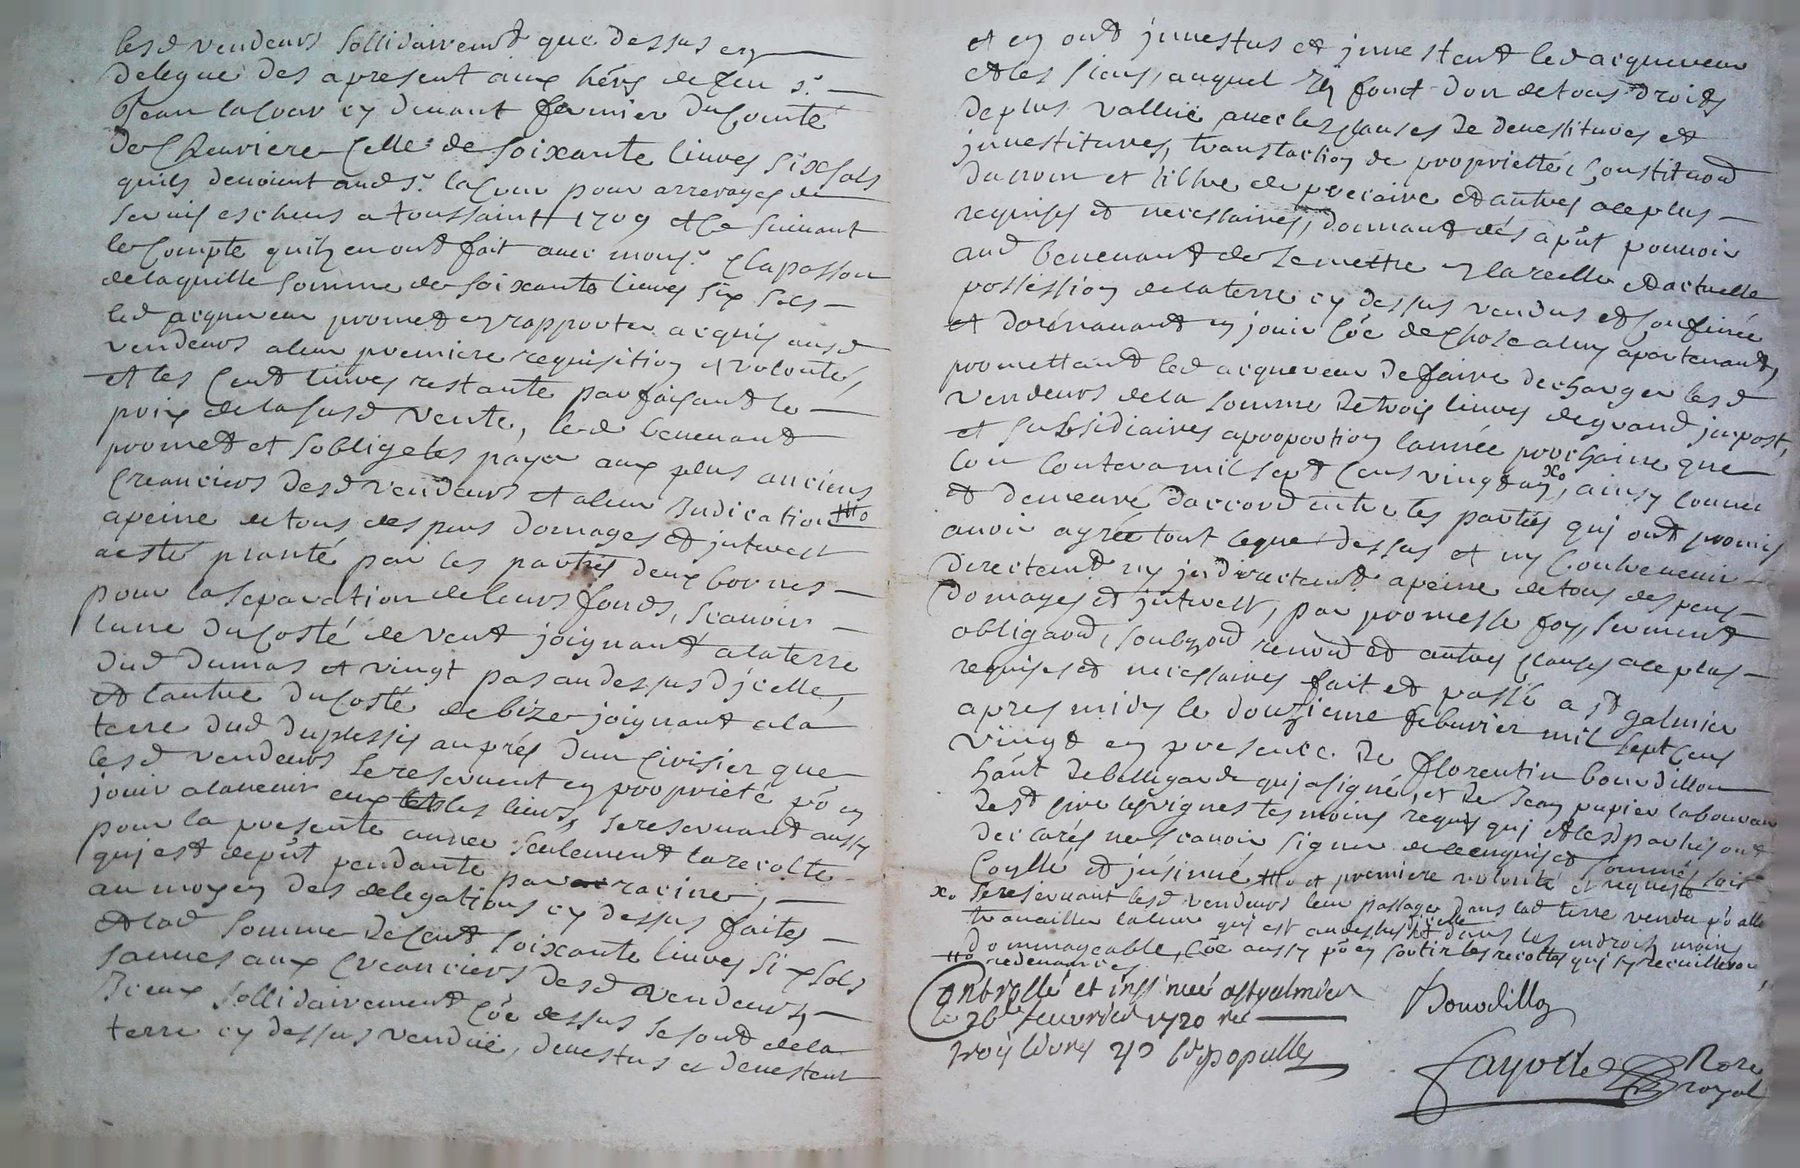 lesd vendeurs sollidairemt que dessus en
delegue des apresent aux hérs de feu sr
Jean lacour cy devant fermier du Comté
de Chevriere celle de soixante livres six sols
quils devoient aud sr lacour pour arrerages de
servis escheus a toussaint 1709 et ce suivant
le Compte quils en ont fait avec monsr Chapasson
de laquelle somme de soixante livres six sols
led acquereur promet en rapporter acquis ausd
vendeurs a leur premiere requisition et volonté,
et les cent livres restante parfaisant le
prix de la susd vente, led benevant
promet et soblige les payer aux plus anciens
Creanciers desd vendeurs et a leur Indication
apeine de tous despens domages et jnterest
a esté planté par les parties deux bornes
pour la separation de leurs fonds, scavoir
lune du costé de vent joignant a la terre
dud dumas et vingt pas au dessus djcelle,
et lautre du costé de bize joignant a la
terre dud duplessis auprés dun Cirisier que
lesd vendeurs se reservent en proprieté pr en
jouir a lavenir eux et les leurs, se reservant aussy
pour la presente année seulement la recolte
qui est depnt pendante par racine;
au moyen des delegations cy dessus faites
et lad somme de cent soixante livres six sols
aux Creanciers desd vendeurs,
Iceux sollidairement cõe dessus se sont de la
terre cy dessus vendüe, devestus et devestent
et en ont jnvestus et jnvestent led acquereur
et les siens, auquel Ils font don de tous droits
de plus vallüe avec les clauses de devestitures et
jnvestitures, translaction de proprietté, Constitaõn
du nom et tiltre de precaire et autres a ce plus
requises et necessaires, donnant dés apñt pouvoir
aud benevant de se mettre en la reelle et actuelle
possession de la terre cy dessus vendus et confinée
et dorénavant en jouir cõe de chose a luy apartenant,
promettant led acquereur de faire décharger lesd
vendeurs de la somme de trois livres de grand jmpost,
et subsidiaires aproportion lannée prochaine que
lon contera mil sept cens vingt un xo, ainsy convenu
et demeuré daccord entre les parties qui ont promis
avoir agréé tout ce que dessus et ny Contrevenir
directemt ny jndirectemt apeine de tous despens
domages et jnterest, par promesse foy, serment
obligaõn, soubzmõn renonõn et autres clauses a ce plus
requises et necessaires fait et passé a st galmier
apres midy le douzieme febvrier mil sept cens
vingt en presence de florentin bourdillon
hánt de bellegarde qui a signé, et de Jean papier laboureur
de st cire les vignes tesmoins requis qui et lesd parties ont
declarés ne scavoir signer de ce enquis et sommés soit
Coyllé et jnsinué et premiere volonté et requeste
xo se reservant lesd vendeurs leur passage dans lad terre vendu pr aller
travailler la leur qui est au dessus djcelle et dans les endroits moins
dommageable, cõe aussy pr en sortir les recoltes qui sy recuilleront,
Controllé et jnsinué a st galmier
le 26e fevvrier 1720 rec
trois livres
Bourdillon
fayolle Nore
royal